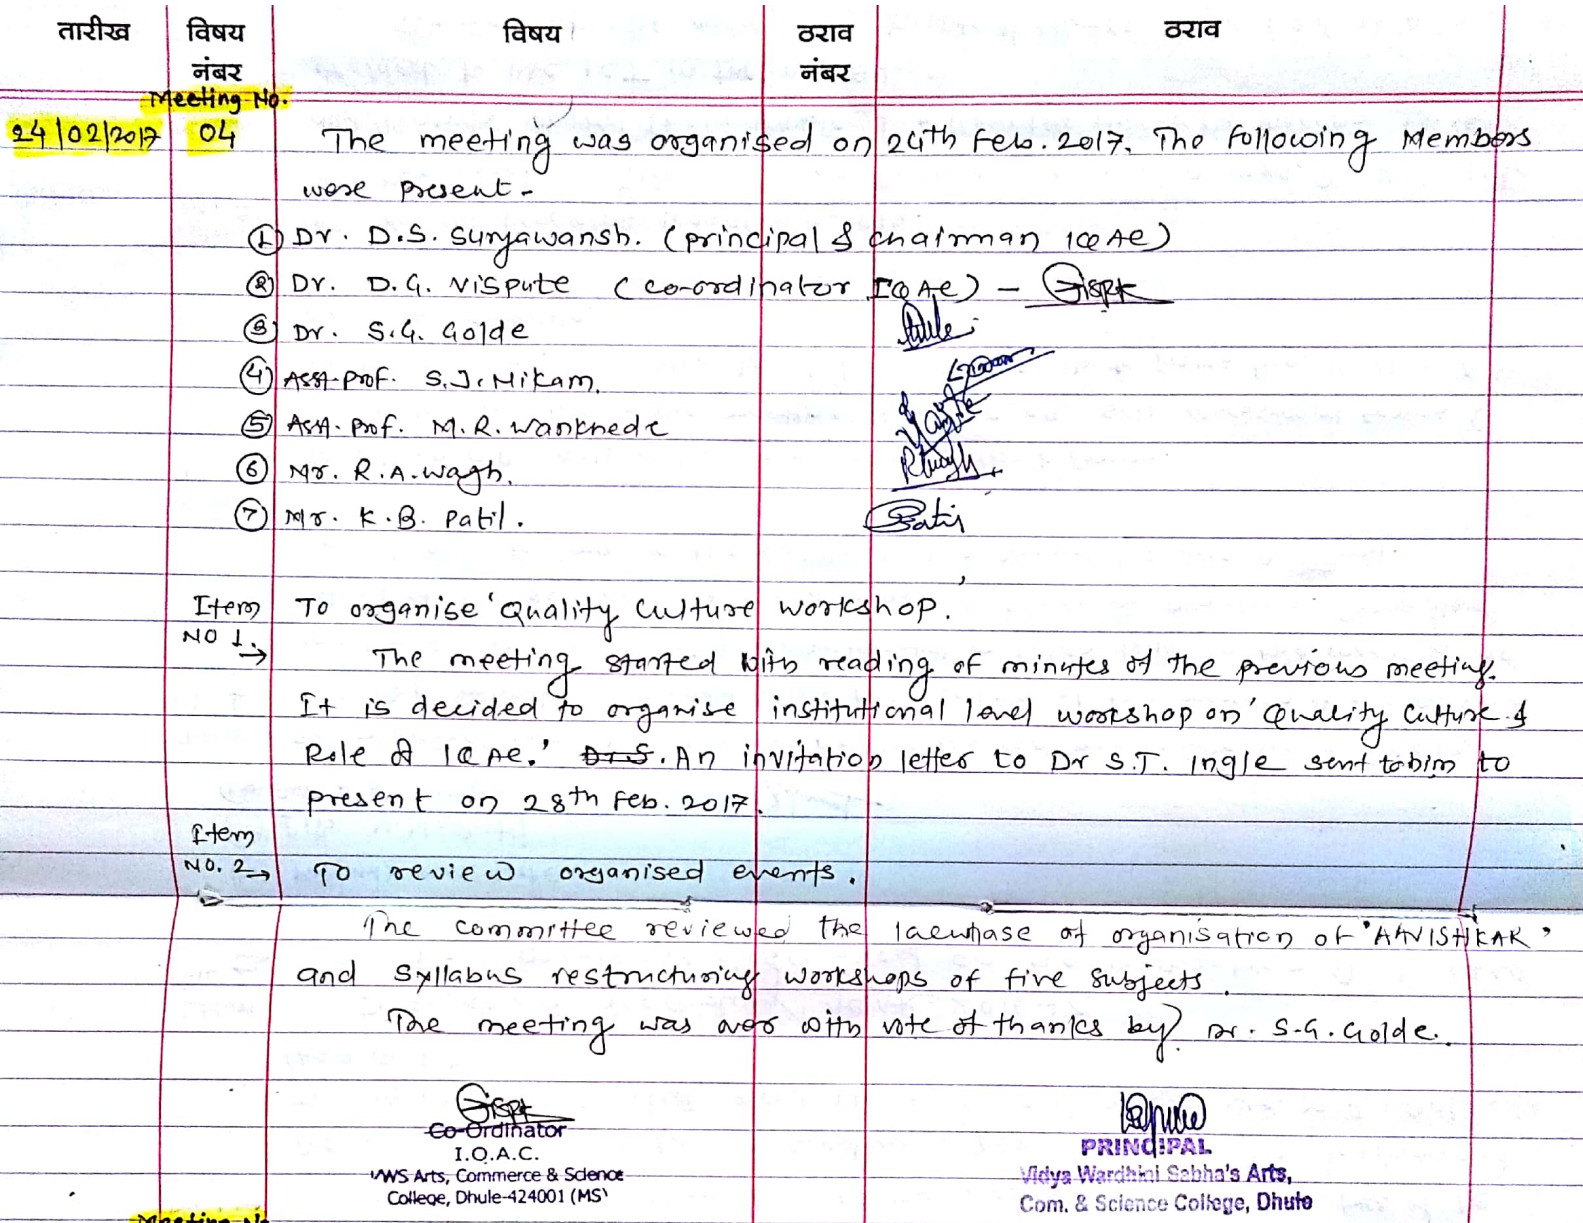 तारीख विषय नंबर विषय ठराव नंबर ठराव
Meeting No.
24/02/2017 04 The meeting was organised on 24th Feb. 2017. The Following Members
were present -
① Dr. D.S. Suryawansh. (principal & chairman IQAC)
② Dr. D.G. Vispute (co-ordinator IQAC) -
③ Dr. S.G. Golde
④ Asst. Prof. S.J. Nikam.
⑤ Asst. Prof. M.R. Wankhede
⑥ Mr. R.A. Wagh.
⑦ Mr. K.B. Patil. Patil
Item NO 1. → To organise 'Quality Culture workshop.'
The meeting started with reading of minutes of the previous meeting.
It is decided to organise institutional level workshop on 'Quality Culture &
Role of IQAC.' Dr S. An invitation letter to Dr S.T. Ingle sent to him to
present on 28th Feb. 2017.
Item NO. 2 → To review organised events.
The committee reviewed the of organisation of 'AAVISHKAR'
and Syllabus restructuring workshops of five subjects.
The meeting was over with vote of thanks by Dr. S.G. Golde.
Co-Ordinator
I.Q.A.C.
VWS Arts, Commerce & Science
College, Dhule-424001 (MS)
PRINCIPAL
Vidya Wardhini Sabha's Arts,
Com. & Science College, Dhule
Meeting No